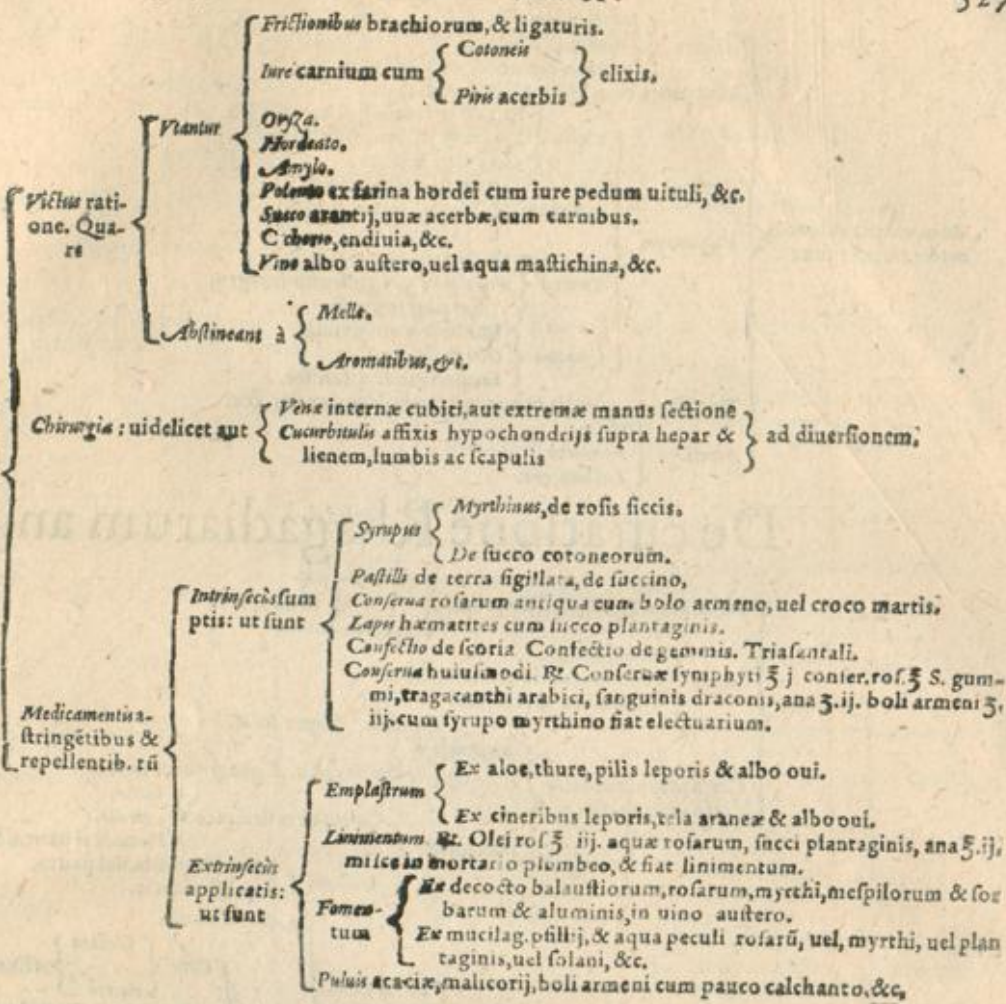 Frictionibus brachiorum, & ligaturis.
Iure carnium cum
Cotoneis
Piris acerbis
elixis.
Vtantur
Oryza.
Hordeato.
Amylo.
Polenta ex farina hordei cum iure pedum uituli, &c.
Succo arantij, uuæ acerbæ, cum carnibus.
C chorio, endiuia, &c.
Vino albo austero, uel aqua mastichina, &c.
Victus rati-
one. Qua-
re
Abstineant à
Melle.
Aromatibus, &c.
Chirurgia : uidelicet aut
Venæ internæ cubiti, aut extremæ manus sectione
Cucurbitulis affixis hypochondrijs supra hepar &
lienem, lumbis ac scapulis
ad diuersionem.
Medicamentis a-
stringētibus &
repellentib. tū
Intrinsecùs sum
ptis: ut sunt
Syrupus
Myrthinus, de rosis siccis.
De succo cotoneorum.
Pastilli de terra sigillata, de succino.
Conserua rosarum antiqua cum bolo armeno, uel croco martis.
Lapis hæmatites cum succo plantaginis.
Confectio de scoria Confectio de gemmis. Triasantali.
Conserua huiusmodi. ℞ Conseruæ symphyti ℥ j conser. ros. ℥ S. gum-
mi, tragacanthi arabici, sanguinis draconis, ana ʒ. ij. boli armeni ʒ.
iij. cum syrupo myrthino fiat electuarium.
Extrinsecùs
applicatis:
ut sunt
Emplastrum
Ex aloe, thure, pilis leporis & albo oui.
Ex cineribus leporis, tela araneæ & albo oui.
Linimentum. ℞. Olei ros ℥ iij. aquæ rosarum, succi plantaginis, ana ℥. ij.
misce in mortario plumbeo, & fiat linimentum.
Fomen-
tum
Ex decocto balaustiorum, rosarum, myrthi, mespilorum & sor
barum & aluminis, in uino austero.
Ex mucilag. psillij, & aqua peculi rosarū, uel, myrthi, uel plan
taginis, uel solani, &c.
Puluis acaciæ, malicorij, boli armeni cum pauco calchanto, &c.